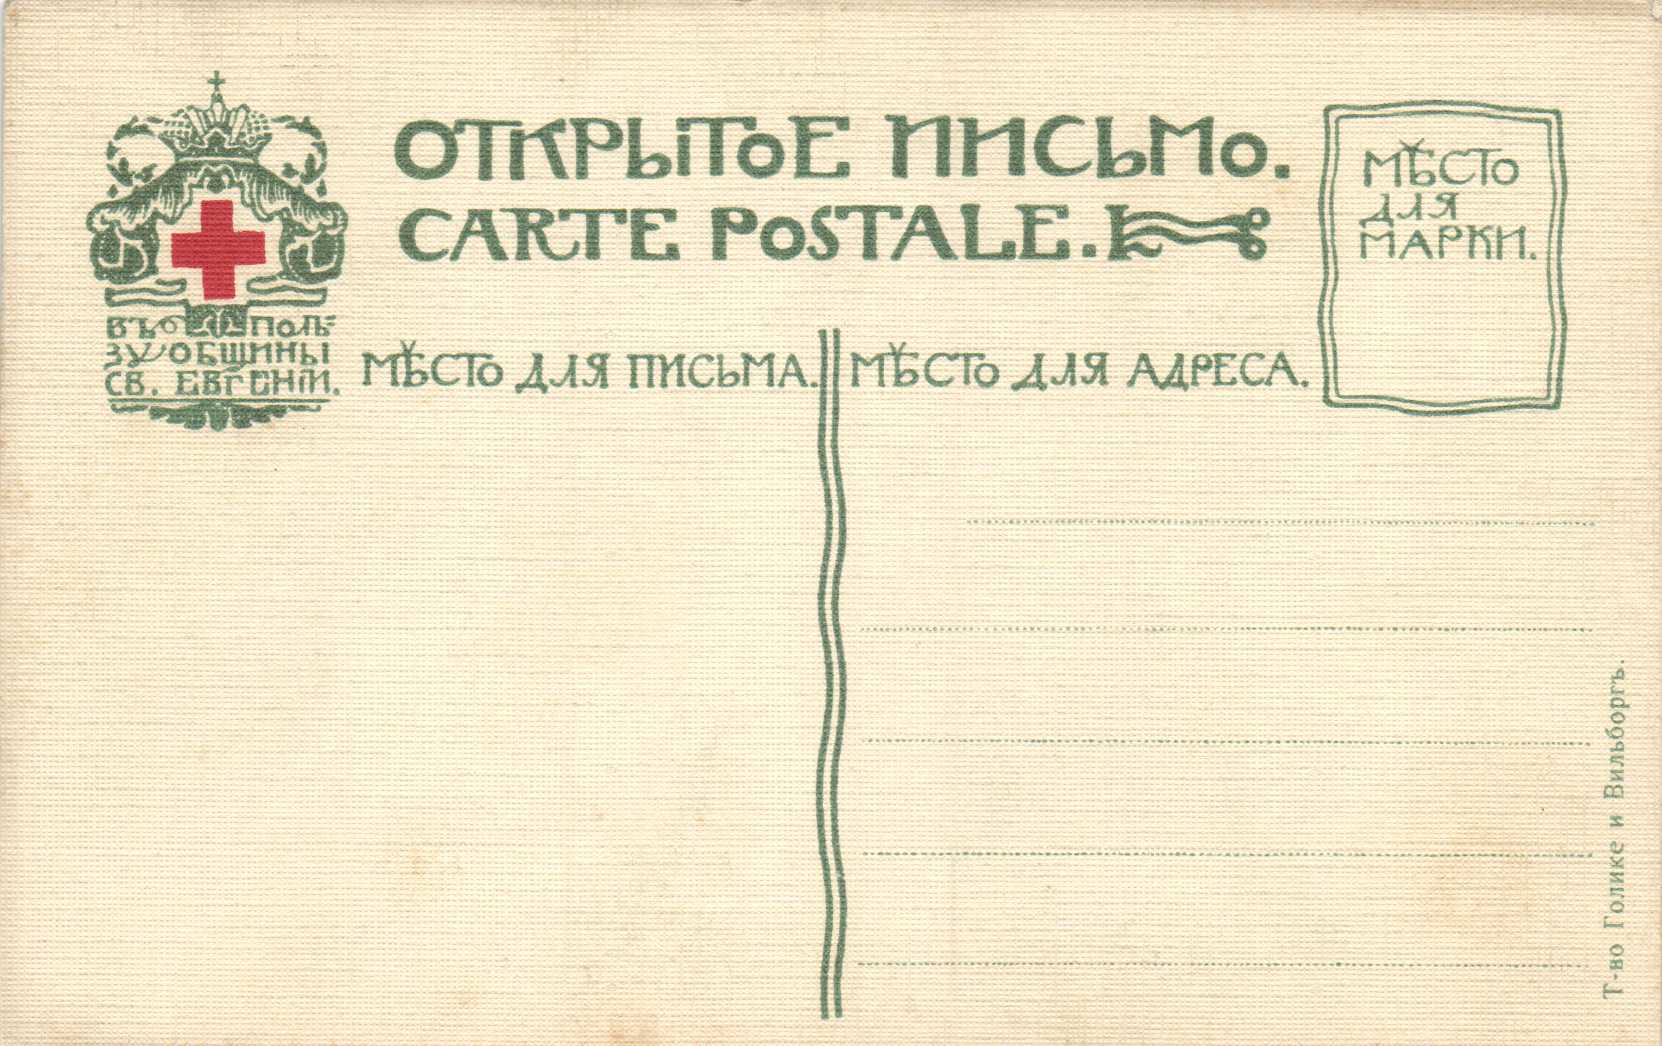 ОТКРЫТОЕ ПИСЬМО.
CARTE POSTALE.
МѢСТО
ДЛЯ
МАРКИ.
ВЪ ПОЛЬ=
ЗУ ОБЩИНЫ
СВ. ЕВГЕНІИ.
МѢСТО ДЛЯ ПИСЬМА.
МѢСТО ДЛЯ АДРЕСА.
Т-во Голике и Вильборгъ.